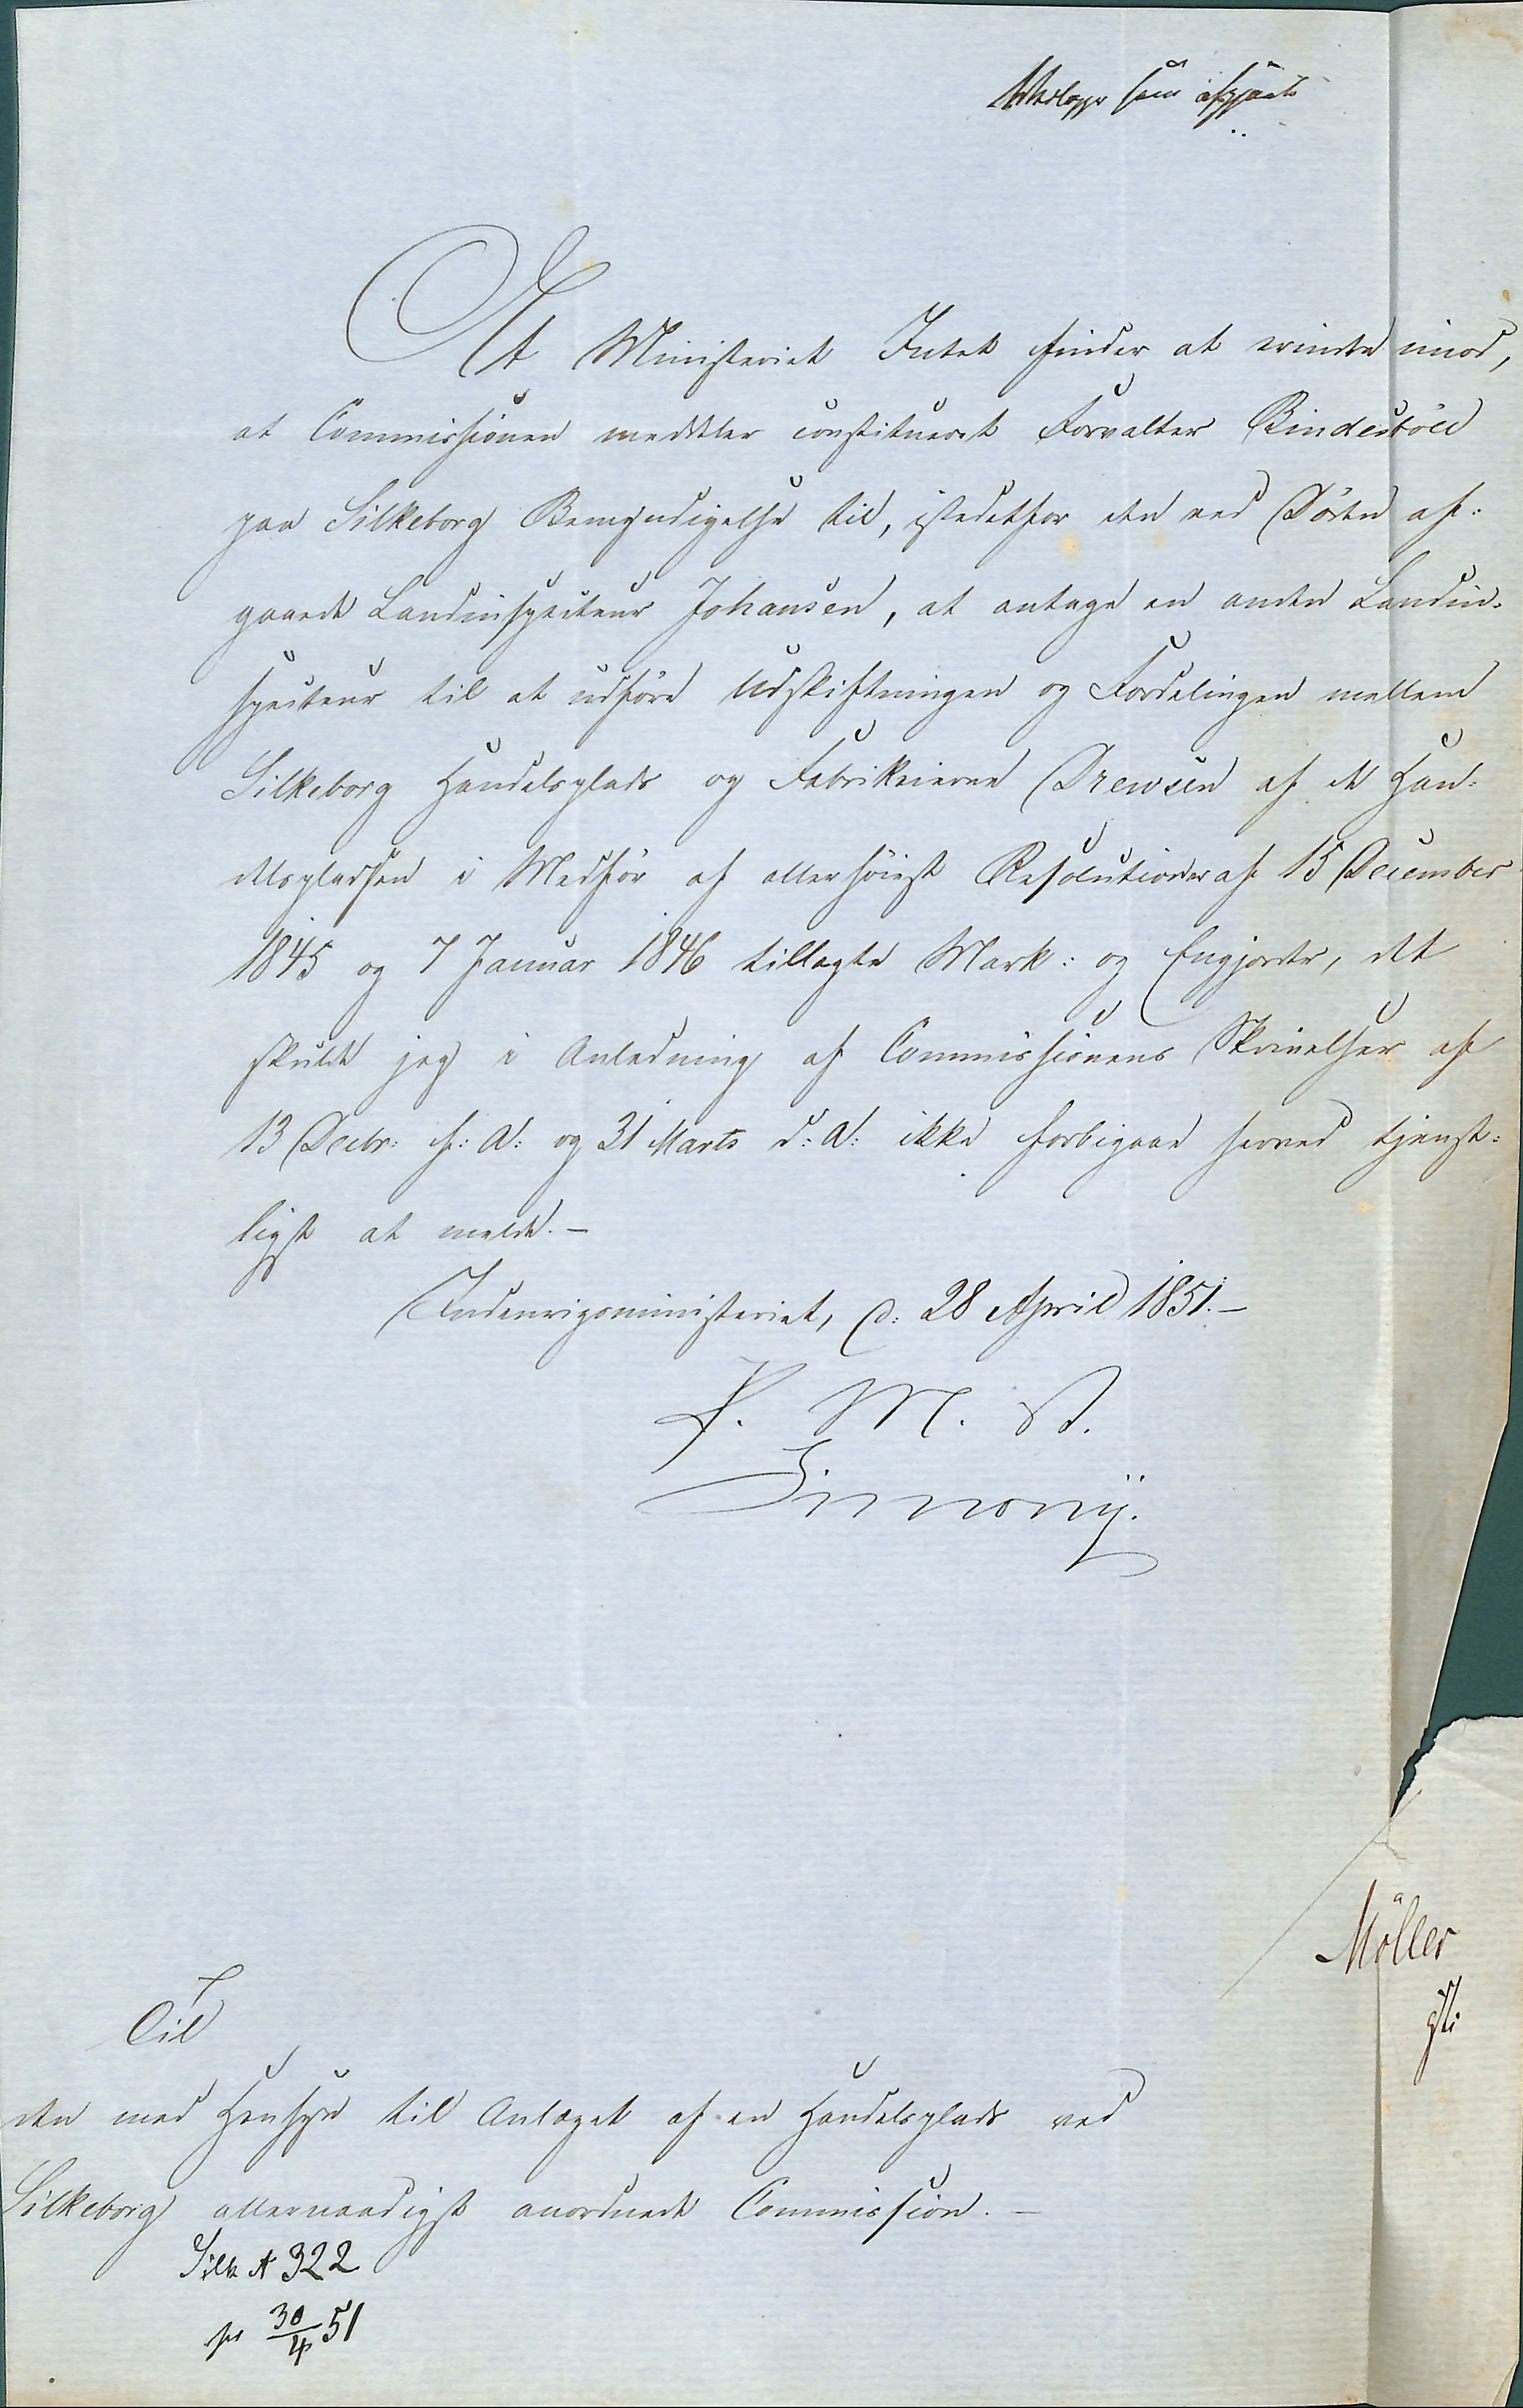 Henlægges som afgjort
At Ministeriet Intet finder at erindre imod,
at Commissionen meddeler constitueret Forvalter Bindesbøll
paa Silkeborg Bemyndigelse til, istedetfor den ved Døden af-
gaaede Landinspecteur Johansen, at antage en anden Landin-
specteur til at udføre Udskiftningen og Fordelingen mellem
Silkeborg Handelsplads og Fabrikeierne Drewsen af de Han-
delspladsen i Medfør af allerhøiest Resolutioner af 15 December
1845 og 7 Januar 1846 tillagte Mark: og Engjorder, det
skulde jeg i Anledning af Commissionens Skrivelser af
13 Decbr: f: A: og 31 Marts d: A: ikke forbigaae herved tjenst-
ligst at melde. –
Indenrigsministeriet, d: 28 April 1851. –
F. M. A.
Simony.
Møller
Til
den med Hensyn til Anlæget af en Handelsplads ved
Silkeborg allernaadigst anordnede Commission. –
Silk A 322
ps 30/4 51